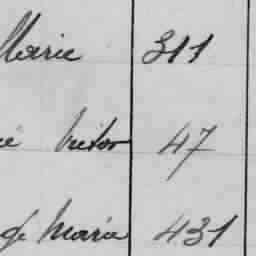 Marie 311
Victor 47
Maria 431